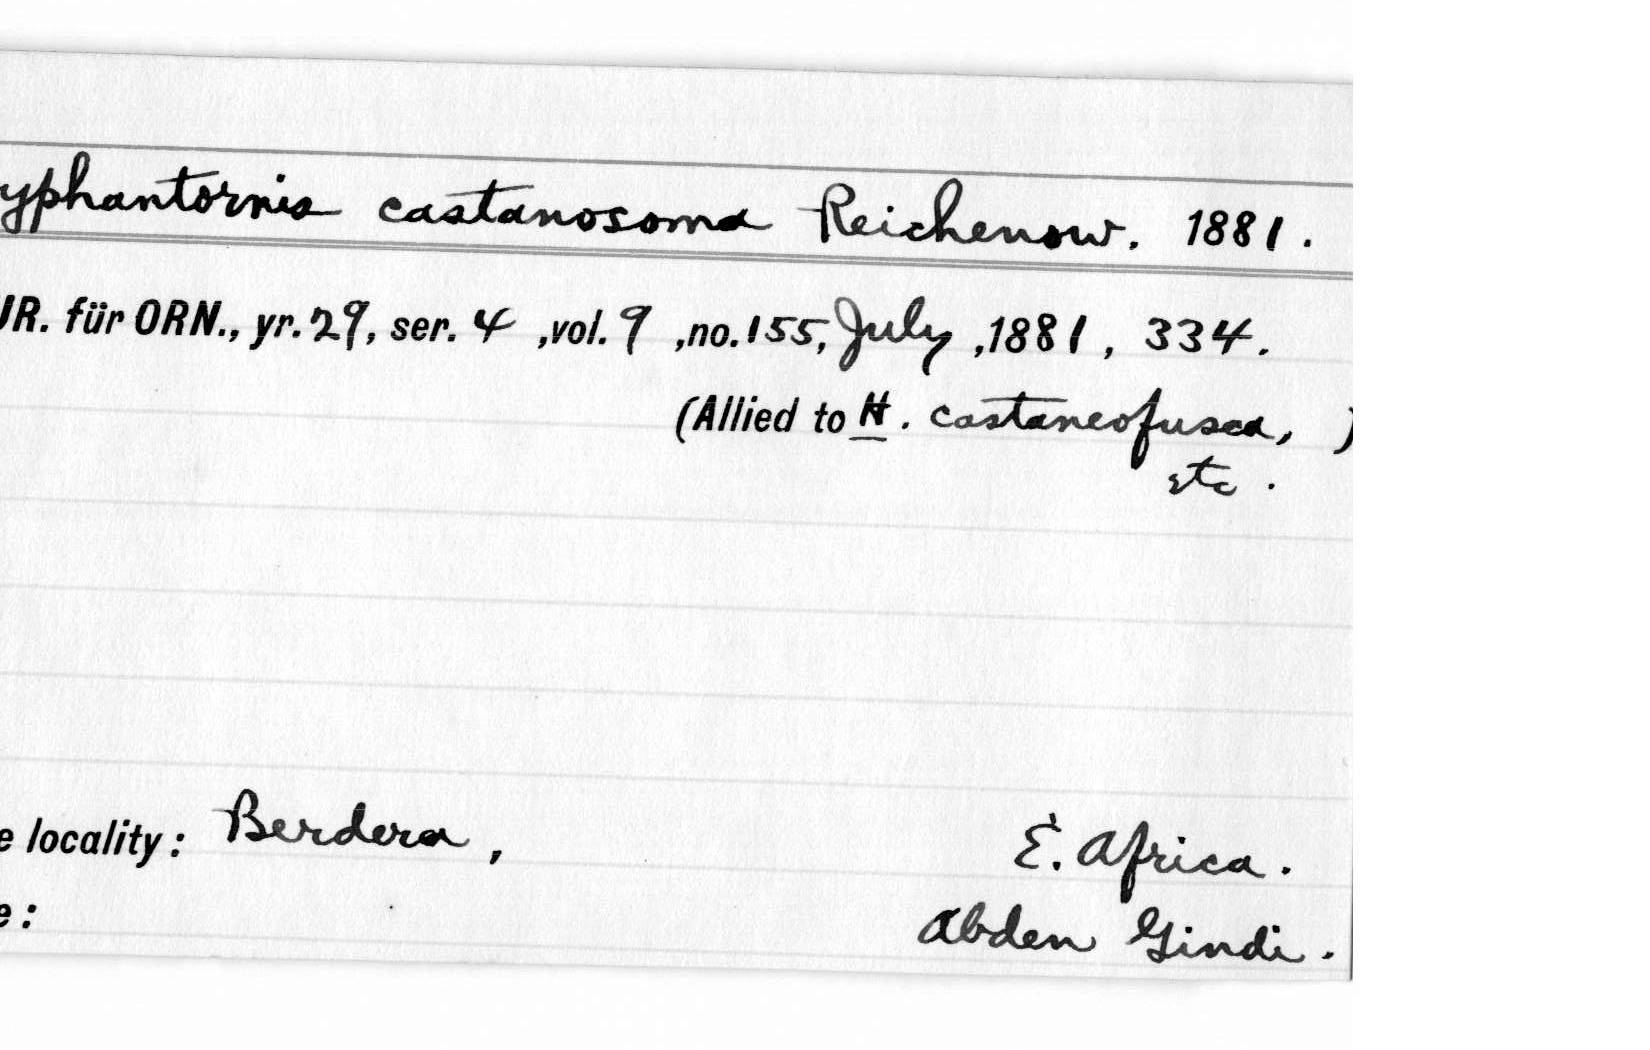 yphantornis castanosoma Reichenow. 1881.
UR. für ORN., yr. 29, ser. 4 , vol. 9 , no. 155, July , 1881 , 334.
(Allied to H. castaneofusca, )
etc.
e locality: Berdera, E. Africa.
e: Abden Gindi.